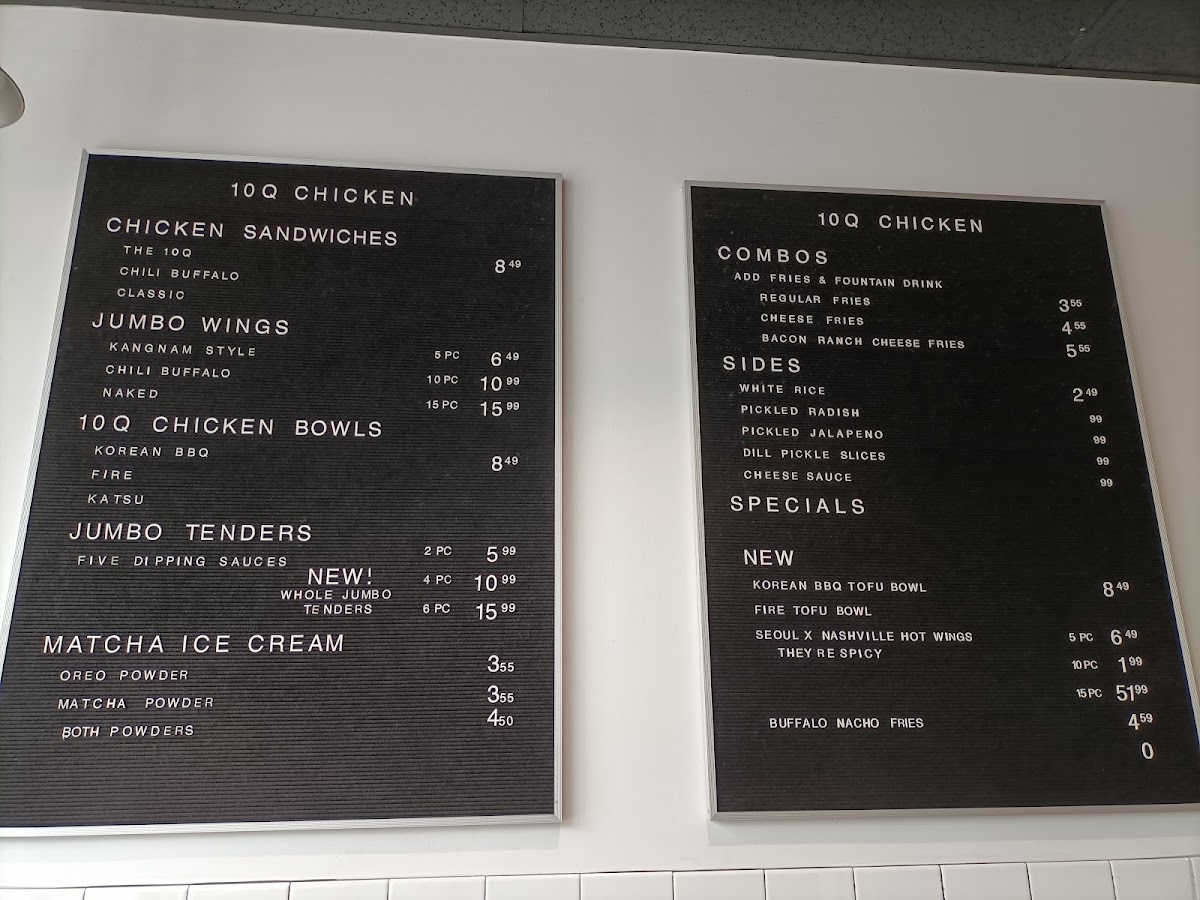 10Q CHICKEN
CHICKEN SANDWICHES
THE 10Q
8 49
CHILI BUFFALO
CLASSIC
JUMBO WINGS
KANGNAM STYLE 5 PC 6 49
CHILI BUFFALO 10 PC 10 99
NAKED 15 PC 15 99
10Q CHICKEN BOWLS
KOREAN BBQ 8 49
FIRE
KATSU
JUMBO TENDERS
FIVE DIPPING SAUCES 2 PC 5 99
NEW! 4 PC 10 99
WHOLE JUMBO
TENDERS 6 PC 15 99
MATCHA ICE CREAM
OREO POWDER 3 55
MATCHA POWDER 3 55
BOTH POWDERS 4 50
10Q CHICKEN
COMBOS
ADD FRIES & FOUNTAIN DRINK
REGULAR FRIES 3 55
CHEESE FRIES 4 55
BACON RANCH CHEESE FRIES 5 55
SIDES
WHITE RICE 2 49
PICKLED RADISH 99
PICKLED JALAPENO 99
DILL PICKLE SLICES 99
CHEESE SAUCE 99
SPECIALS
NEW
KOREAN BBQ TOFU BOWL 8 49
FIRE TOFU BOWL
SEOUL X NASHVILLE HOT WINGS 5 PC 6 49
THEY'RE SPICY 10 PC 1 99
15 PC 51 99
BUFFALO NACHO FRIES 4 59
0